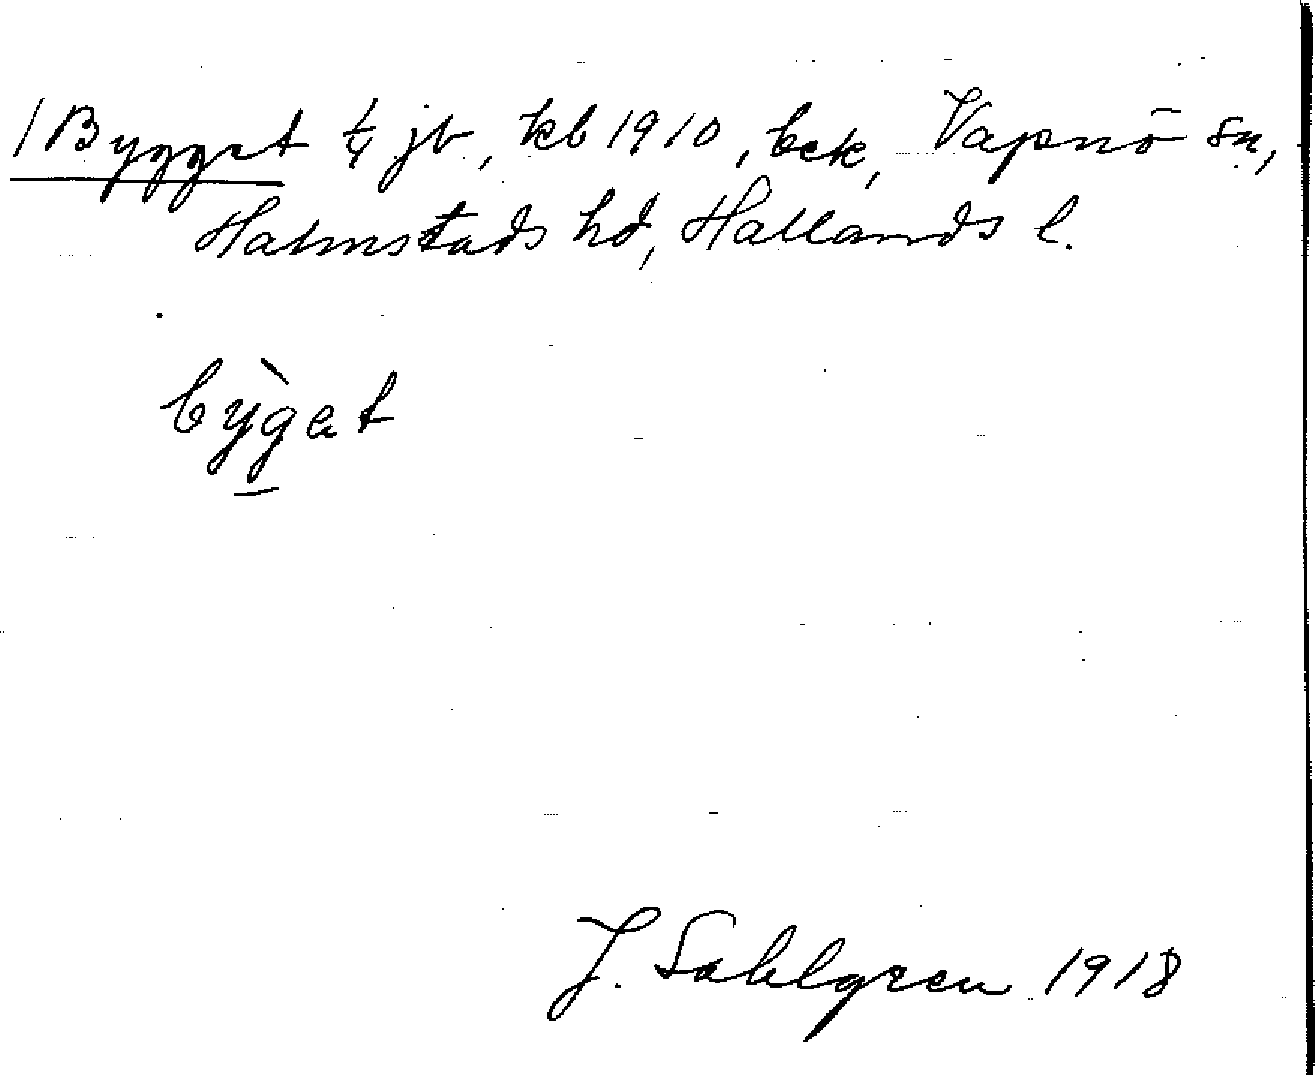 /Bygget ¼ jb, kb 1910, bek, Vapnö sn,
Halmstads hd, Hallands l.
bỳgat
J. Sahlgren 1918